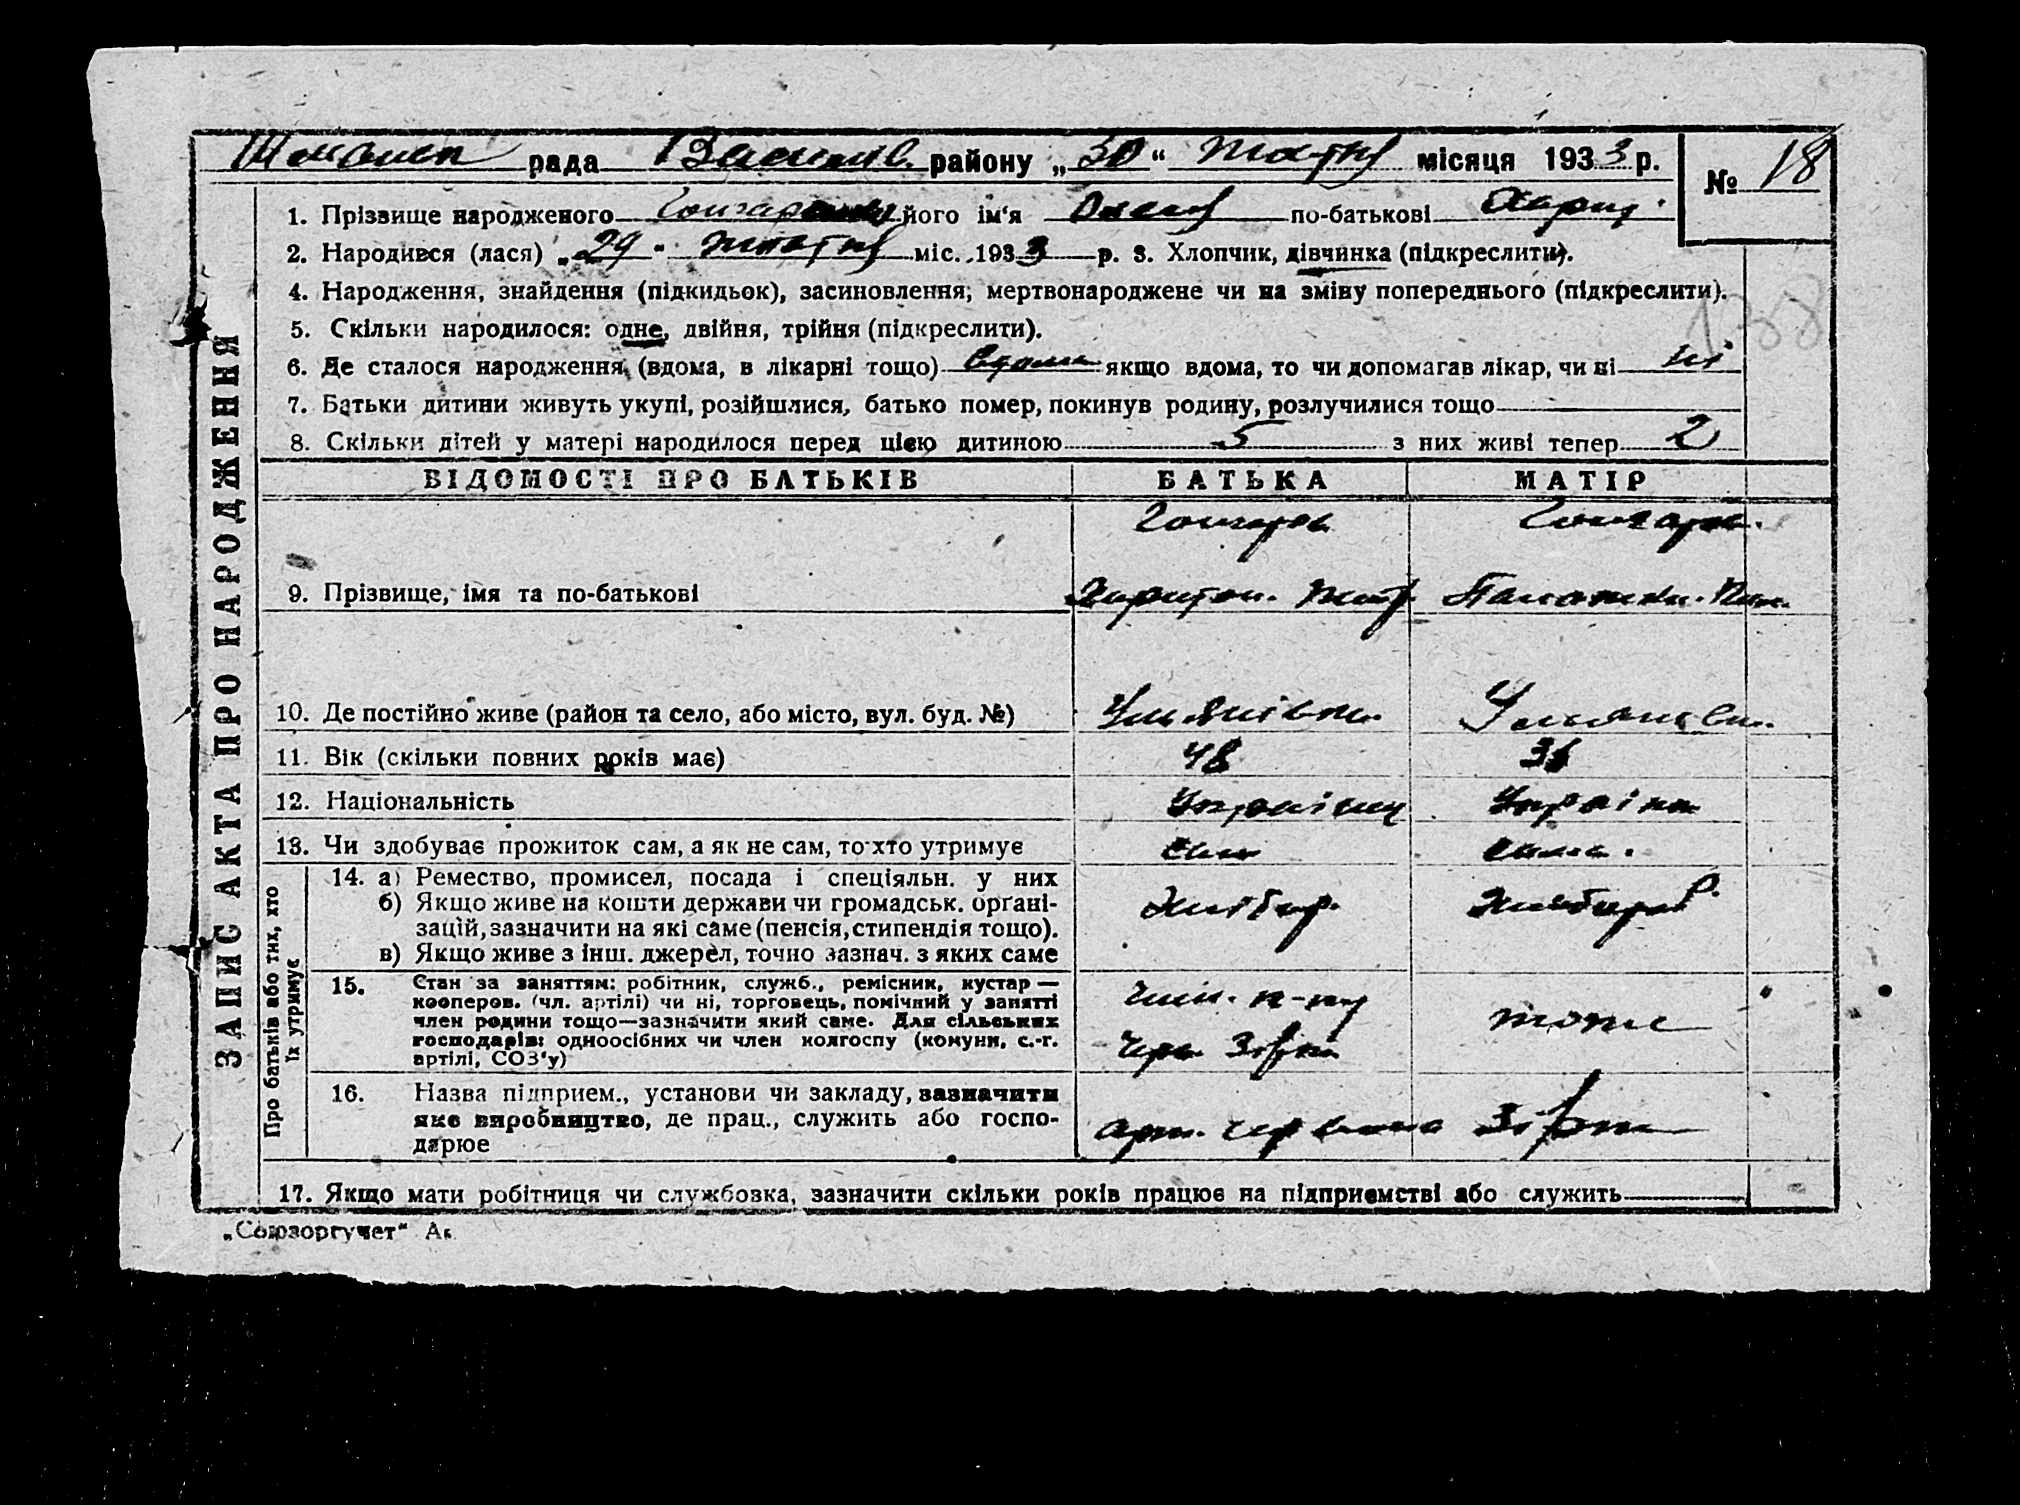 рада району „30“ жовтня місяця 1933 р. № 18
1. Прізвище народженого його ім'я по-батькові Харит.
2. Народився (лася) „29" жовтня міс. 1933 р. 3. Хлопчик, дівчинка (підкреслити).
4. Народження, знайдення (підкидьок), засиновлення, мертвонароджене чи на зміну попереднього (підкреслити).
138
5. Скільки народилося: одне, двійня, трійня (підкреслити).
6. Де сталося народження (вдома, в лікарні тощо) вдома якщо вдома, то чи допомагав лікар, чи ні ні
7. Батьки дитини живуть укупі, розійшлися, батько помер, покинув родину, розлучилися тощо
8. Скільки дітей у матері народилося перед цією дитиною 5 з них живі тепер 2
ЗАПИС АКТА ПРО НАРОДЖЕННЯ
ВІДОМОСТІ ПРО БАТЬКІВ БАТЬКА МАТІР
Гончарен. Гончарен.
9. Прізвище, імя та по-батькові Харитон.
10. Де постійно живе (район та село, або місто, вул. буд. №) Ульянівка Ульянівка
11. Вік (скільки повних років має) 48
12. Національність Українец Українка
13. Чи здобуває прожиток сам, а як не сам, то хто утримує сам сама.
Про батьків або тих, хто їх утримує
14. а) Ремество, промисел, посада і спеціяльн. у них
б) Якщо живе на кошти держави чи громадськ. орґані-
зацій, зазначити на які саме (пенсія, стипендія тощо).
в) Якщо живе з інш. джерел, точно зазнач. з яких саме
хлібор. хлібороб
15. Стан за заняттям: робітник, служб., ремісник, кустар —
кооперов. (чл. артілі) чи ні, торговець, помічний у занятті
член родини тощо—зазначити який саме. Для сільських
господарів: одноосібних чи член колгоспу (комуни, с.-г.
артілі, СОЗ'у)
член к-пу
черв. Зірка
тоже
16. Назва підприєм., установи чи закладу, зазначити
яке виробництво, де прац., служить або госпо-
дарює
арт. червона Зірка
17. Якщо мати робітниця чи службовка, зазначити скільки років працює на підприємстві або служить
„Союзоргучет“